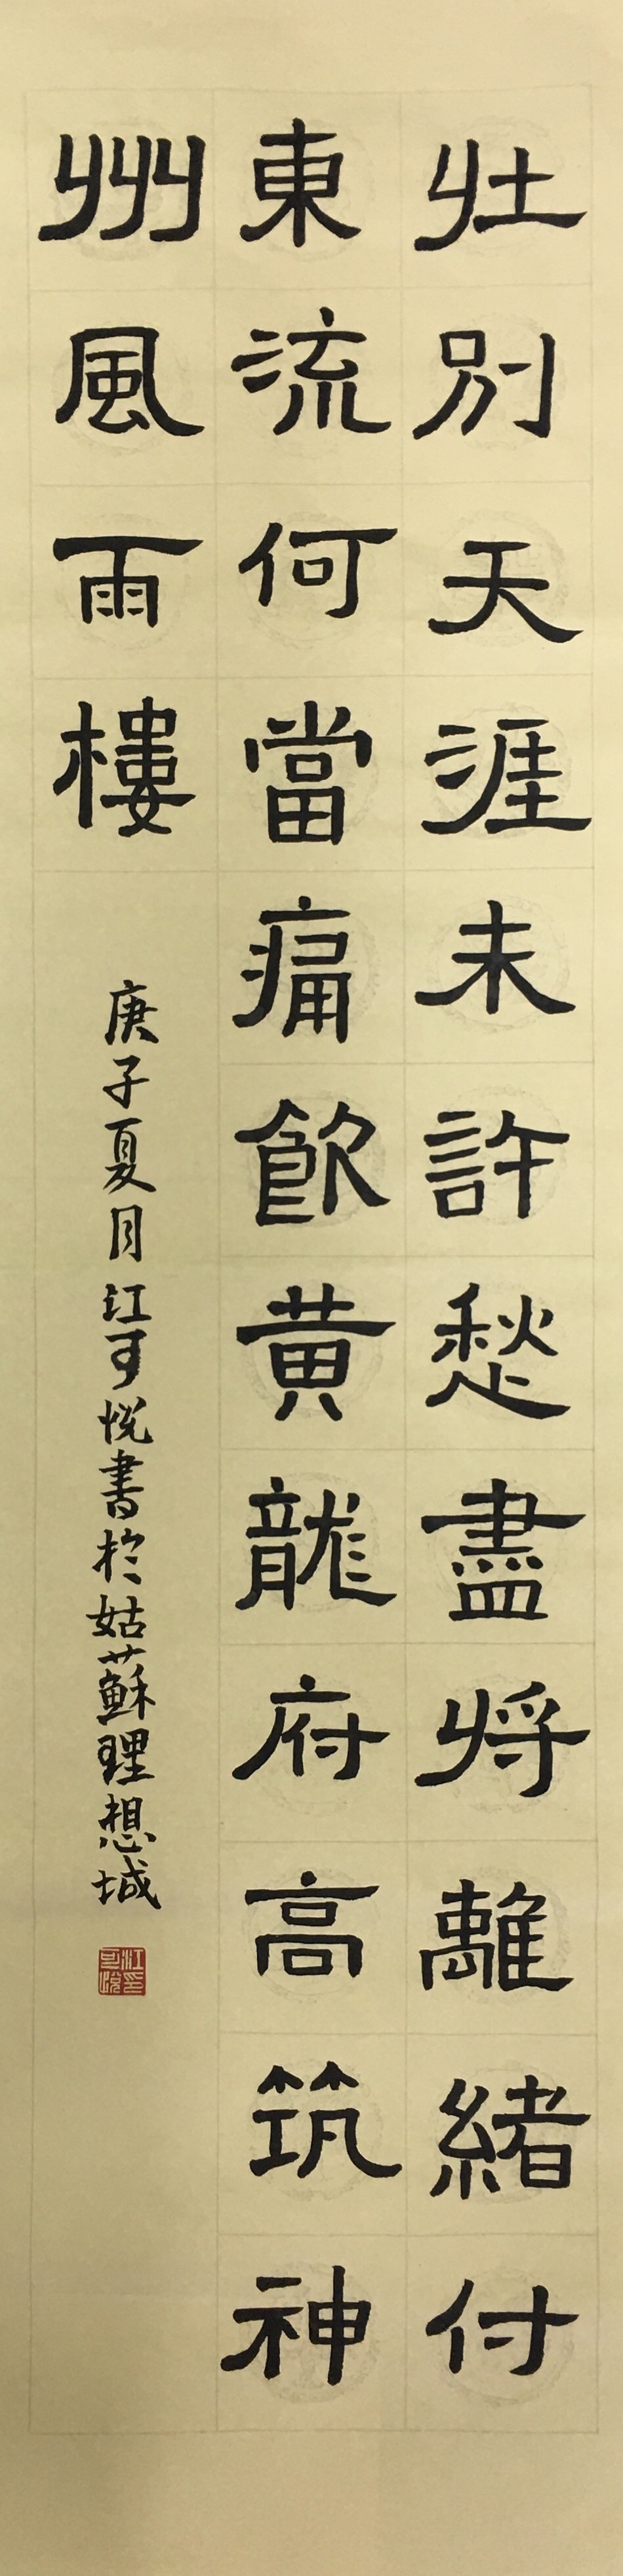 壯別天涯未許愁盡將離緒付
東流何當痛飲黃龍府高筑神
州風雨樓
庚子夏月江可悅書於姑蘇理想城
江可悅印